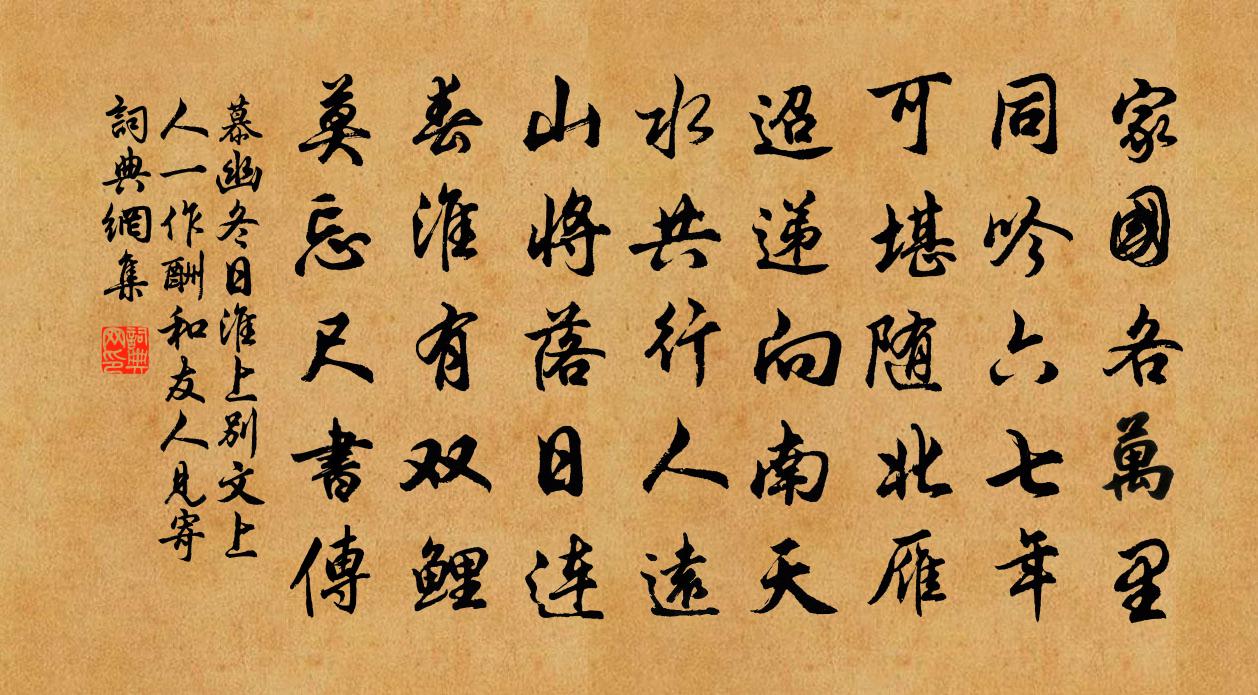 家國各萬里
同吟六七年
可堪随北雁
迢递向南天
水共行人遠
山將落日連
春淮有双鲤
莫忘尺書傳
慕幽冬日淮上別文上
人一作酬和友人見寄
詞典網集
詞典
网印